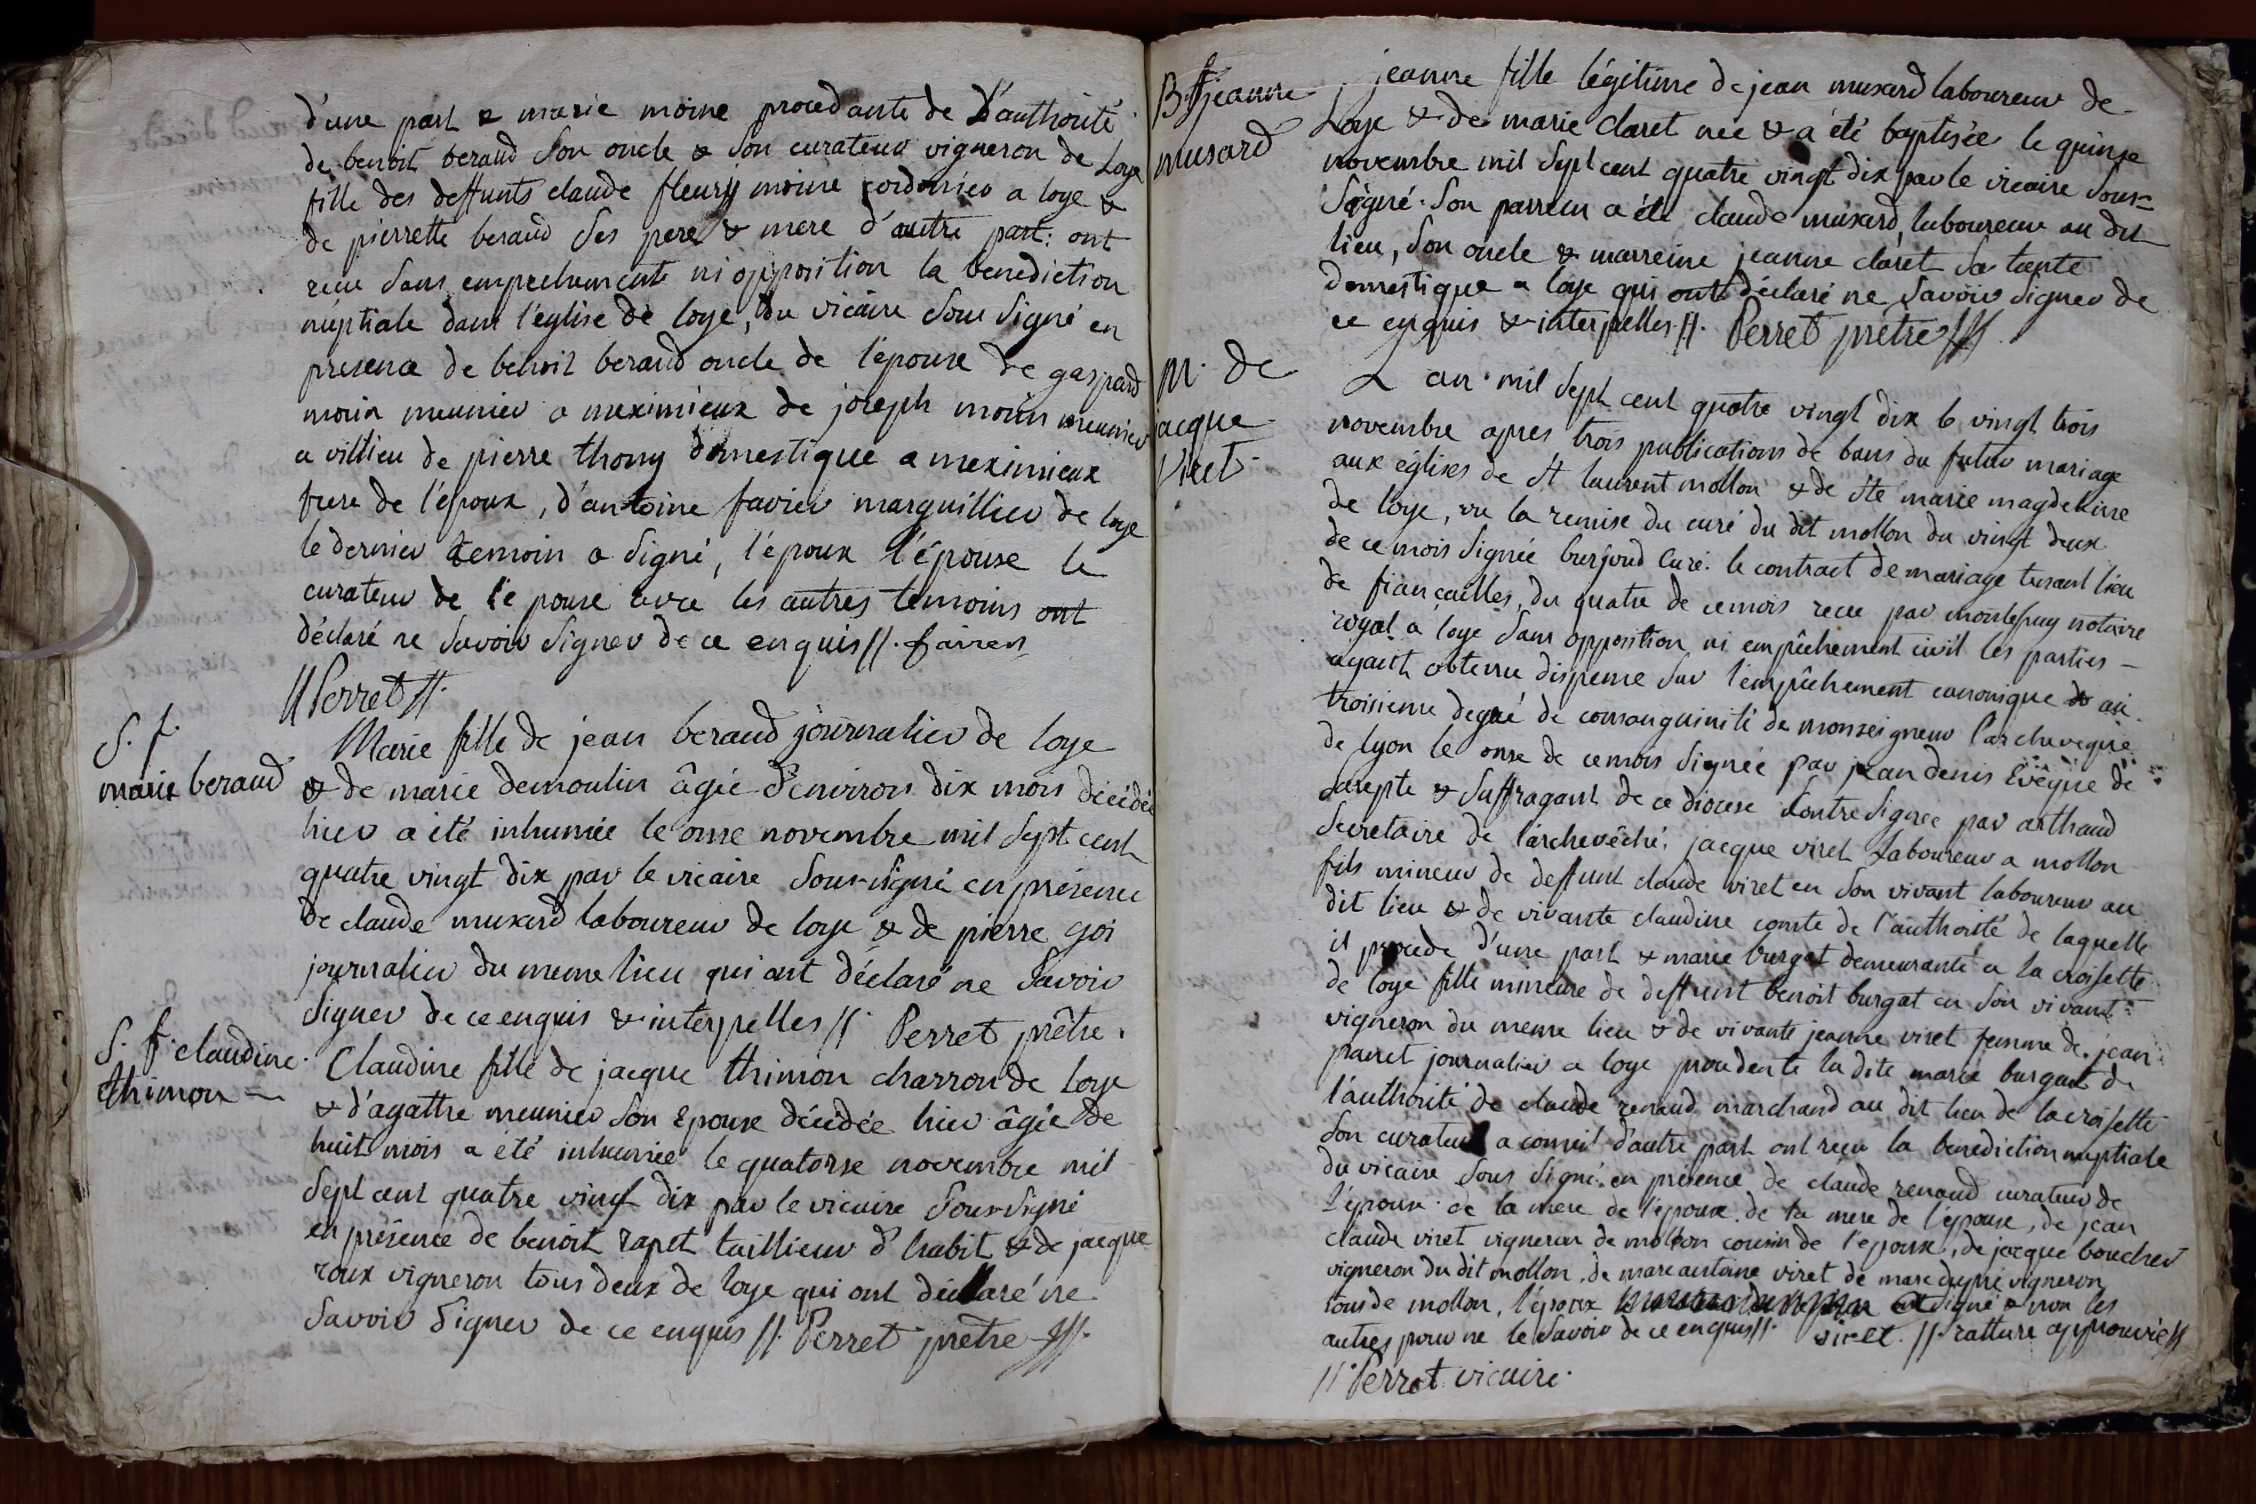 d'une part & marie moine procedante de L'authorité
de benoit beraud son oncle & son curateur vigneron de Loye
fille des deffunts claude fleury moine cordonier a loye &
de pierrette beraud ses pere & mere d'autre part: ont
recu sans empechements ni opposition la benediction
nuptiale dans l'église de loye, du vicaire sous signé en
presence de benoit beraud oncle de l'épouse de gaspard
morin meunier a meximieux de joseph morin meunier
a villieu de pierre thony domestique a meximieux
frere de l'époux, d'antoine favier marguillier de loye
le dernier temoin a signé, l'époux l'épouse le
curateur de l'e pouse avec les autres temoins ont
déclaré ne savoir signer de ce enquis //. favier
// Perret //.
S. f.
marie beraud
Marie fille de jean beraud journalier de loye
& de marie demoulin âgée d'environ dix mois décédée
hier a été inhumée le onse novembre mil sept cent
quatre vingt dix par le vicaire sous-signé en présence
de claude musard laboureur de loye & de pierre goi
journalier du meme lieu qui ont déclaré ne savoir
signer de ce enquis & interpelles //. Perret prêtre.
S. f. claudine
thimon =
Claudine fille de jacque thimon charron de loye
& d'agathe meunier son Epouse décédée hier âgée de
huit mois a été inhumée le quatorse novembre mil
sept cent quatre vingt dix par le vicaire sous-signé
en présence de benoit rapet taillieur d'habit & de jacque
roux vigneron tous deux de loye qui ont déclaré ne
savoir signer de ce enquis //. Perret prêtre ///.
B. f jeanne
musard
jeanne fille légitime de jean musard laboureur de
Loye & de marie claret née & a été baptisée le quinse
novembre mil sept cent quatre vingt dix par le vicaire sous=
signé. son parrein a été claude musard, laboureur au dit
lieu, son oncle & marreine jeanne claret sa tante
domestique a loye qui ont déclaré ne savoir signer de
ce enquis & interpelles //. Perret prêtre ///.
M. de
jacque
Viret
L an mil sept cent quatre vingt dix le vingt trois
novembre apres trois publications de bans du futur mariage
aux églises de st laurent mollon & de ste marie magdeleine
de loye, vu la remise du curé du dit mollon du vingt deux
de ce mois signée burjoud curé. le contract de mariage tenant lieu
de fiançailles, du quatre de ce mois recu par montefuy notaire
royal a loye sans opposition ni empêchement civil les parties -
ayant obtenu dispense sur l'empêchement canonique au
troisieme degré de consanguinité de monseigneur l'archeveque
de lyon le onse de ce mois signée par jean denis Evêque de
sarepte & suffragant de ce diocese contresignée par arthaud
secretaire de l'archevêché. jacque viret laboureur a mollon
fils mineur de deffunt claude viret en son vivant laboureur au
dit lieu & de vivante claudine comte de l'authorité de laquelle
il procede d'une part & marie burgat demeurante a la croisette
de loye fille mineure de deffunt benoit burgat en son vivant
vigneron du meme lieu & de vivante jeanne viret femme de jean
journalier a loye procedente la dite marie burgat de
l'authorité de claude renaud marchand au dit lieu de la croisette
son curateur a conseil d'autre part ont recu la benediction nuptiale
du vicaire sous signé. en presence de claude renaud curateur de
l'épouse. de la mere de l'époux. de la mere de l'épouse, de jean
claude viret vigneron de mollon cousin de l'epoux, de jacque boucher
vigneron du dit mollon. de marc antoine viret de marc vigneron
tous de mollon. l'époux a signé & non les
autres pour ne le savoir de ce enquis //. viret. // ratture approuvée //
//. Perret vicaire.